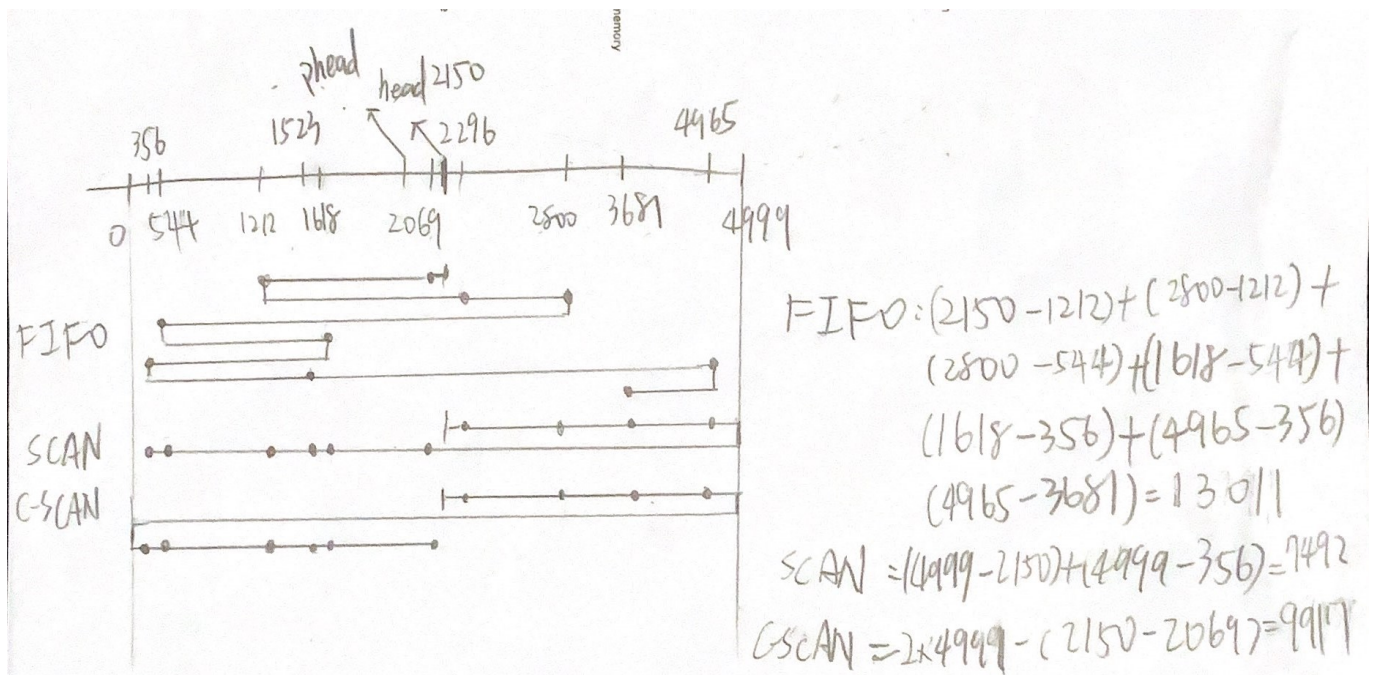 nemory
phead
head 2150
356 1523 2296 4965
0 544 1212 1618 2069 2800 3681 4999
FIFO
SCAN
C-SCAN
FIFO:(2150-1212)+(2800-1212)+
(2800-544)+(1618-544)+
(1618-356)+(4965-356)
(4965-3681)=13011
SCAN=(4999-2150)+(4999-356)=7492
C-SCAN=2×4999-(2150-2069)=9917